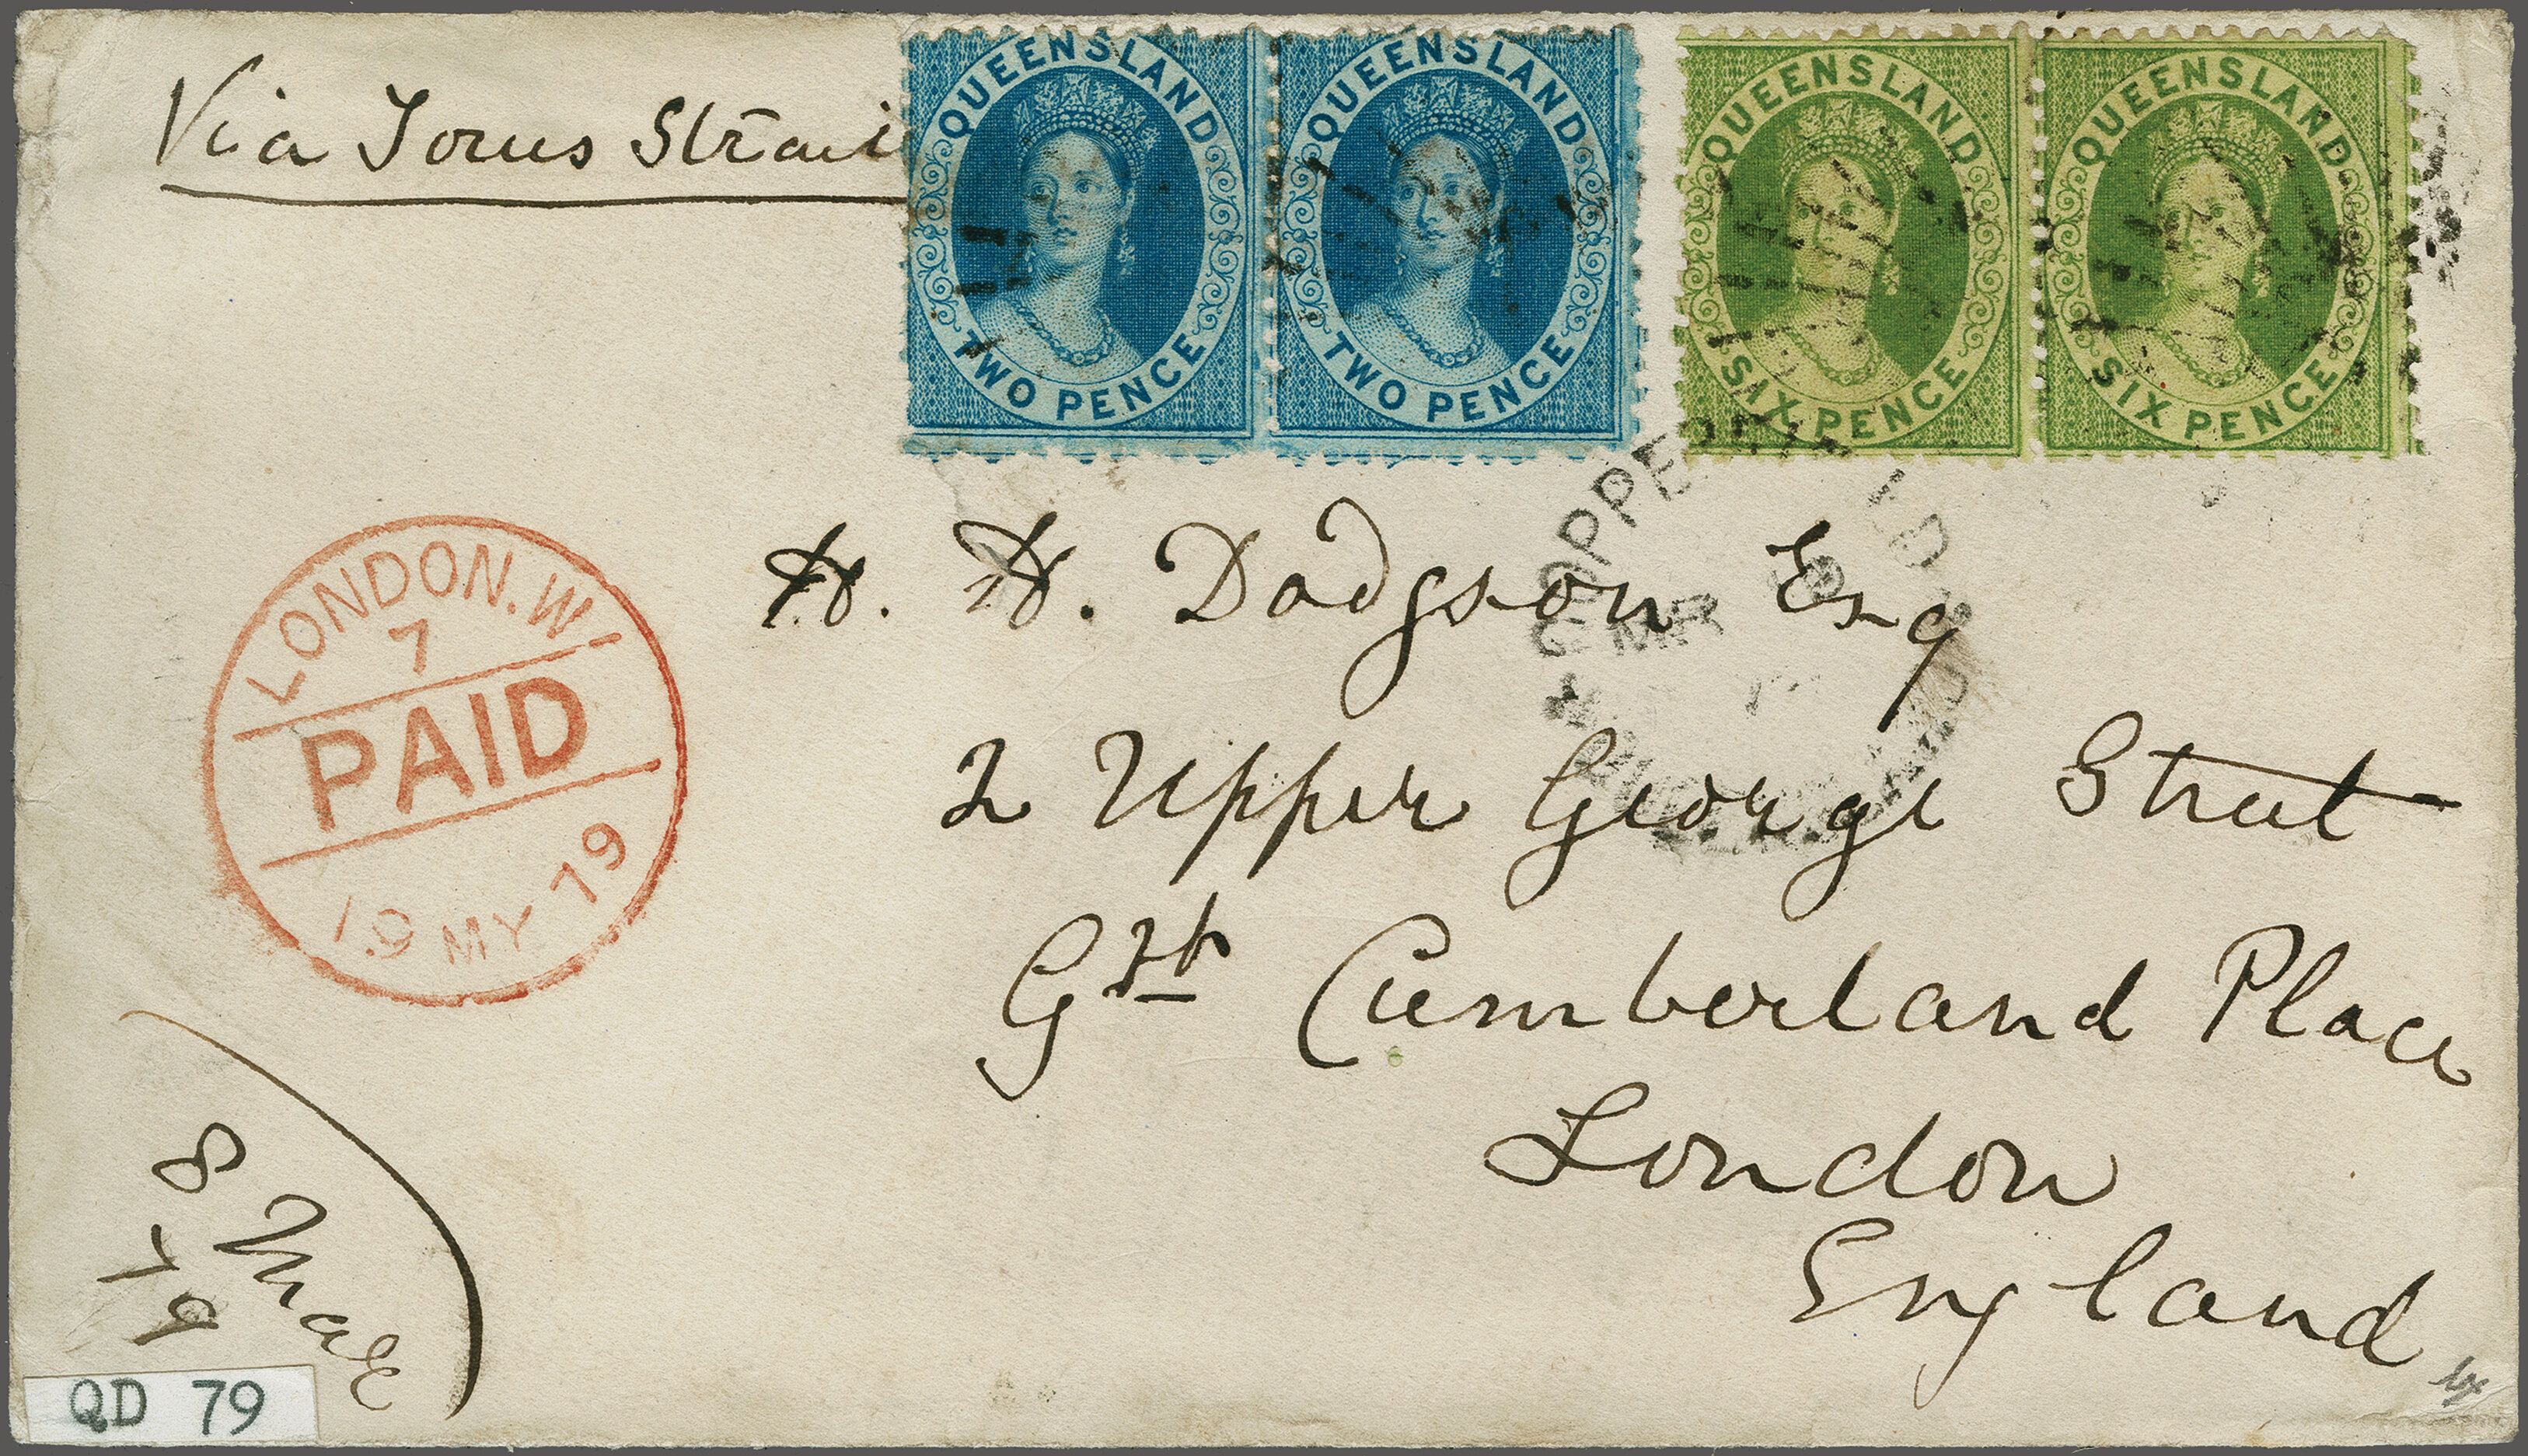 Via Torres Strai
QUEENSLAND
TWO PENCE
QUEENSLAND
TWO PENCE
QUEENSLAND
SIX PENCE
QUEENSLAND
SIX PENCE
COPPE LD
MR
LONDON.W
7
PAID
19 MY 79
H. H. Dodgson Esq
2 Upper George Street
Gt Cumberland Place
London
England
8 Mar
79
QD 79